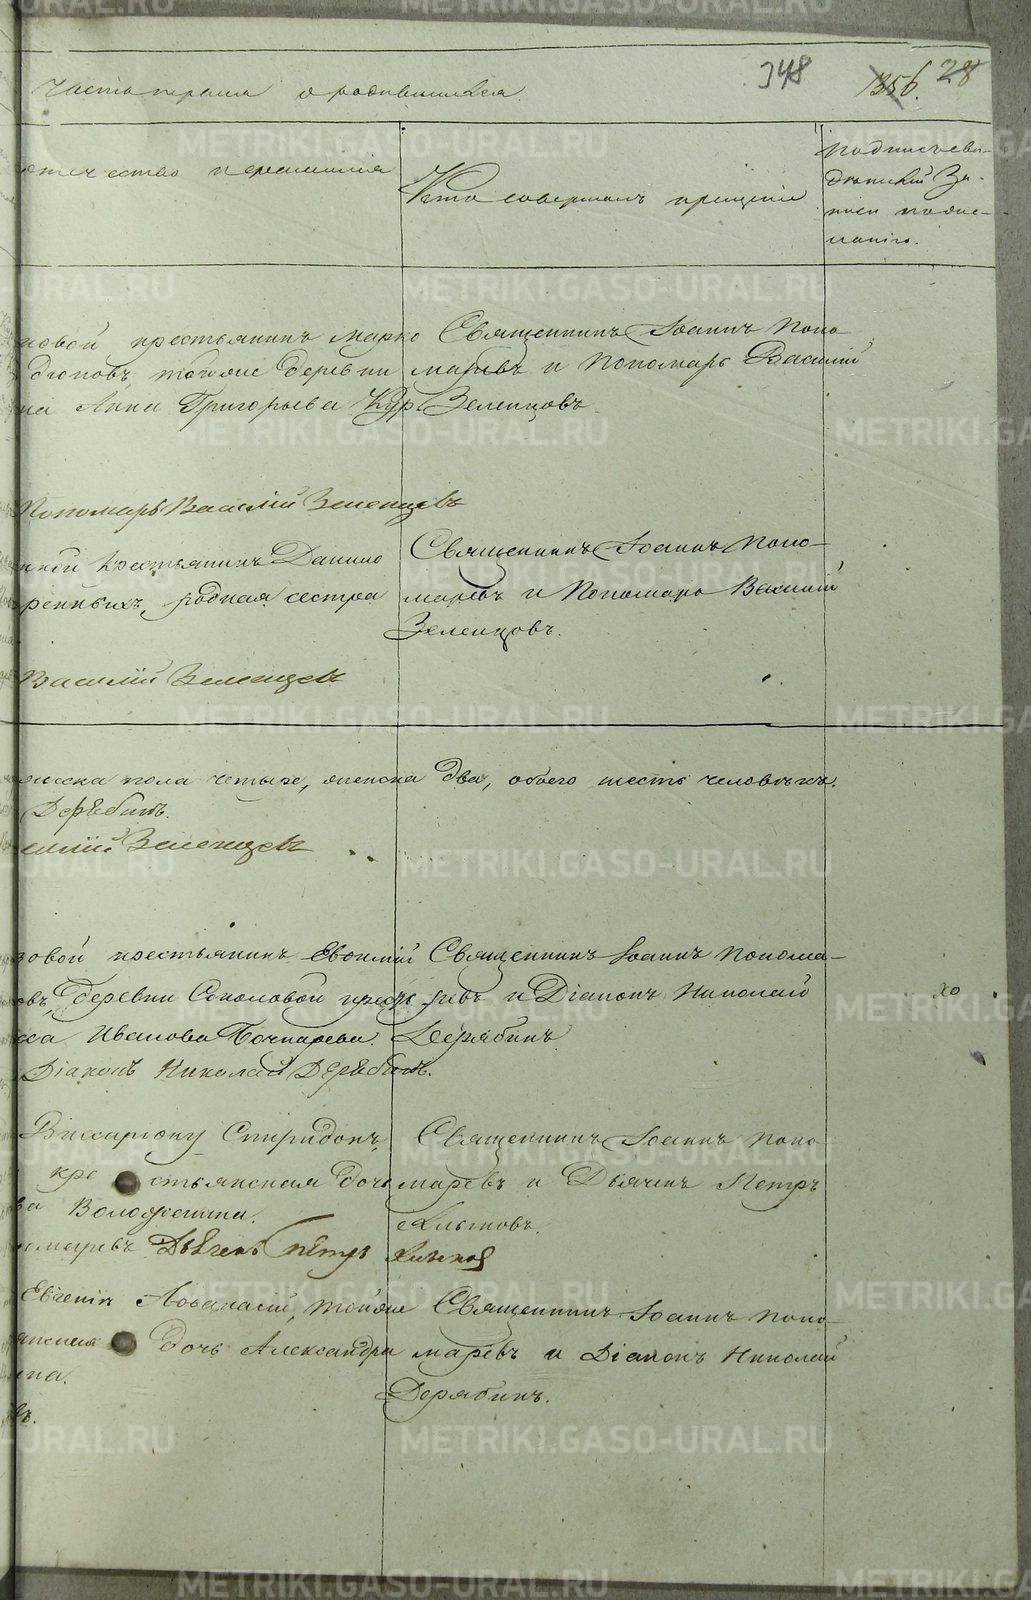 348 1356. 28
Часть первая о родившихся.
отчество и фамилія
Кто совершалъ крещеніе
Подпись сви-
дѣтелей За-
писи по жела-
нію.
повой крестьянинъ Марко
дюковъ, тойже деревни
на Анна Григорьева Кур
Священникъ Іоаннъ Поно
маревъ и Пономарь Василій
Зеленцовъ
Пономарь Василій Зеленцовъ
ной крестьянинъ Данило
ренныхъ, родная сестра
Священникъ Іоаннъ Поно-
маревъ и Пономарь Василій
Зеленцовъ.
Василій Зеленцовъ
ужеска пола четыре, женска два, обоего шесть человѣкъ.
Дерябинъ.
силій Зеленцовъ
зовой крестьянинъ Евѳимій
овъ, деревни Соколовой крест
са Иванова Бочкарева.
Священникъ Іоаннъ Понома-
ревъ и Діаконъ Николай
Дерябинъ
Діаконъ Николай Дерябинъ.
Виссаріону Спиридонъ,
кре стьянская дочь
ва Воложенина.
Священникъ Іоаннъ Поно-
маревъ и Дьячекъ Петръ
омаревъ Дьячекъ Петръ
Евгеній Аѳанасій, тойже
янская дочь Александра
на.
въ.
Священникъ Іоаннъ Поно-
маревъ и Діаконъ Николай
Дерябинъ.
METRIKI.GASO-URAL.RU